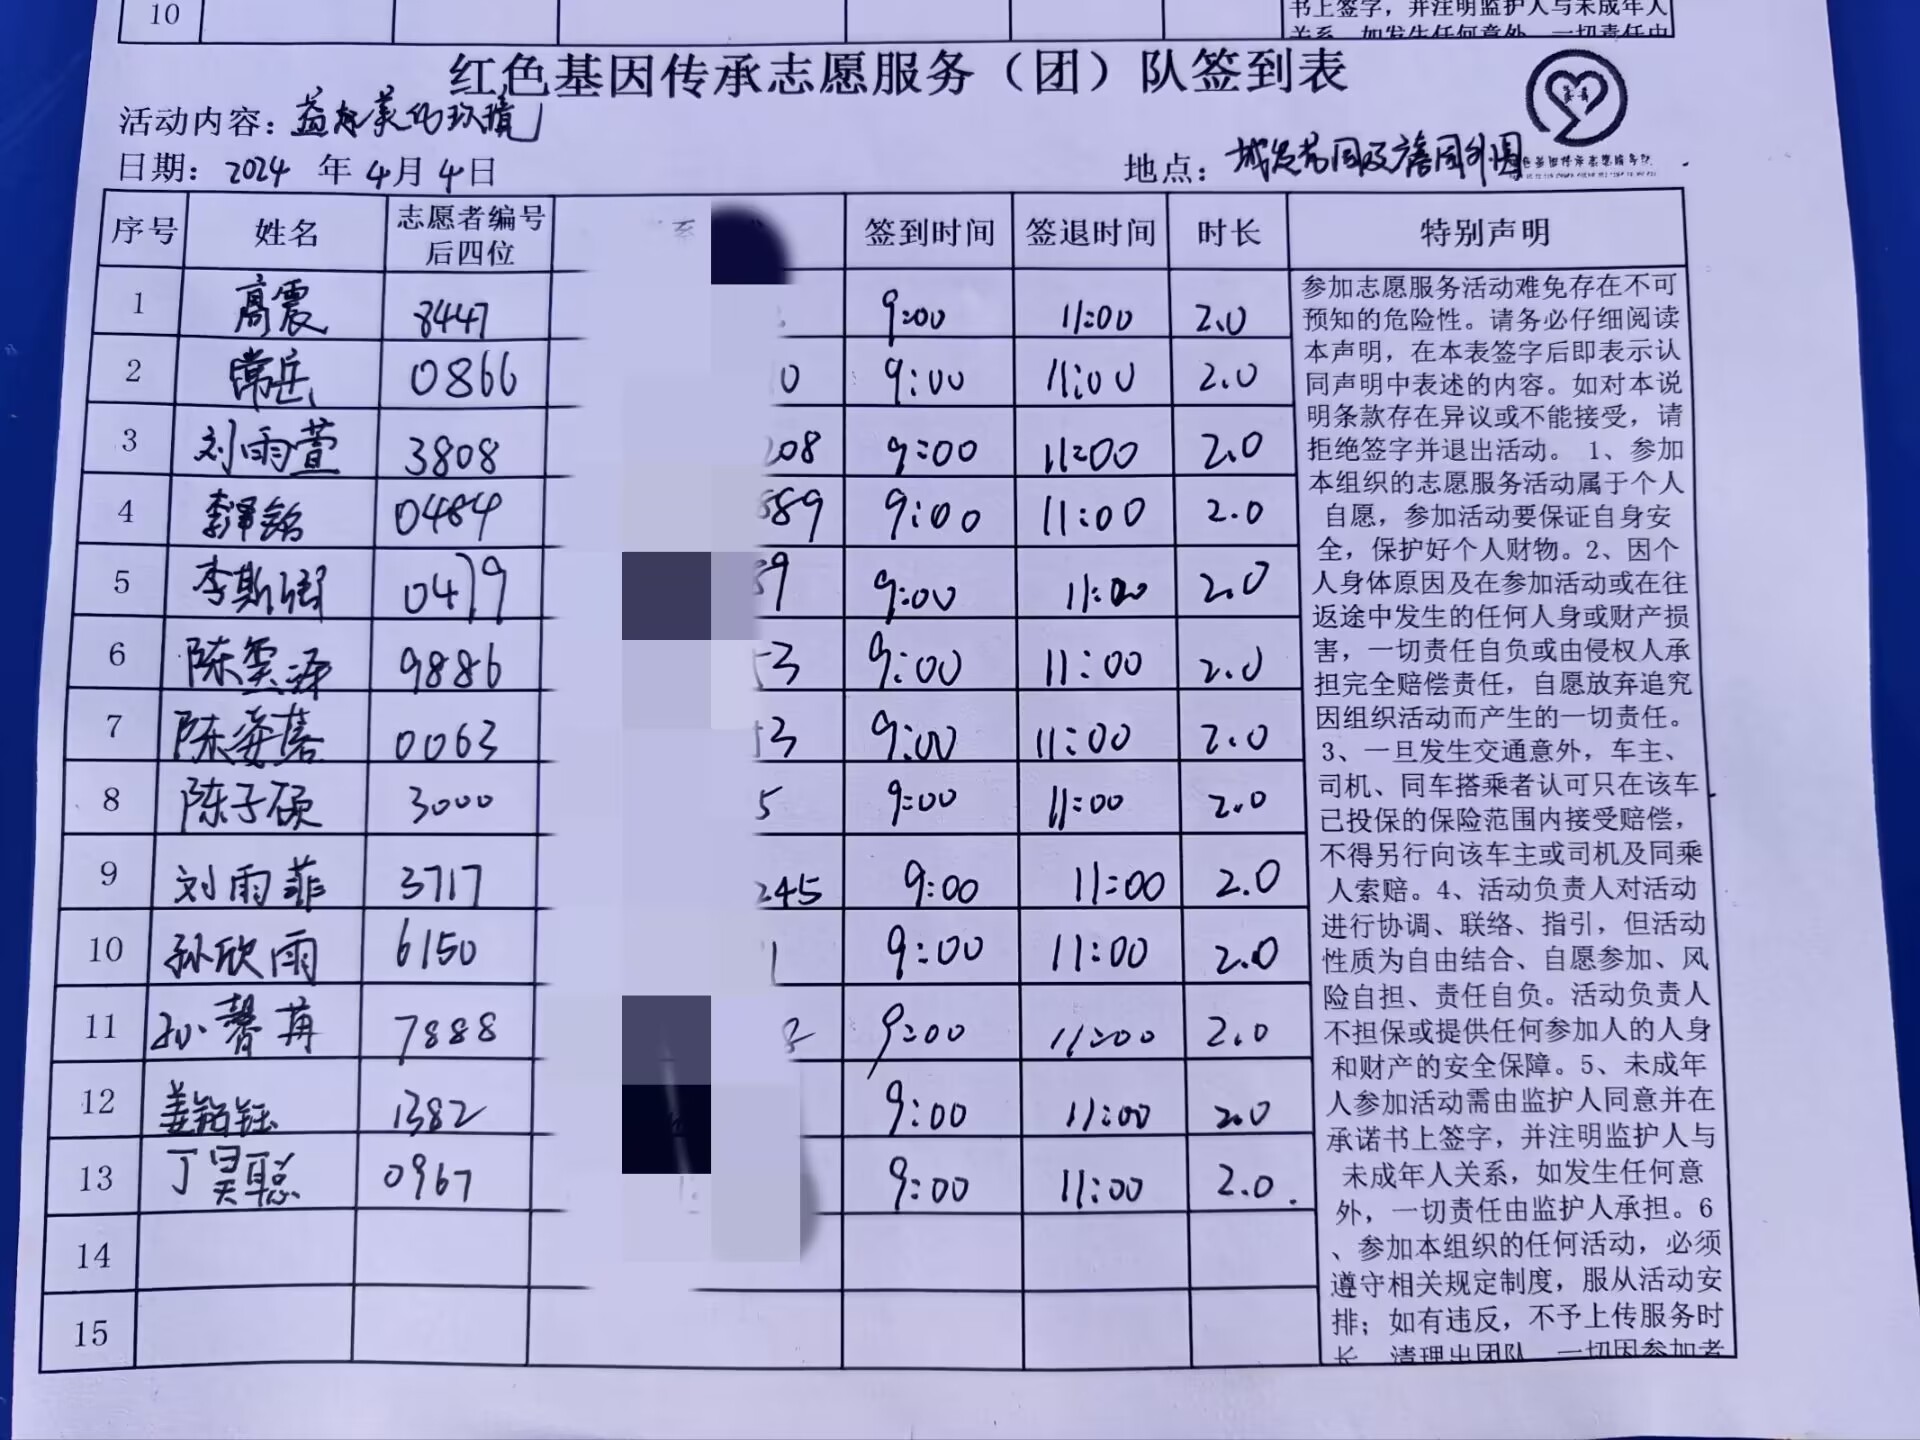 10
书上签字，并注明监护人与未成年人
关系，如发生任何意外，一切责任由
红色基因传承志愿服务（团）队签到表
活动内容：
日期：2024 年 4月 4日
地点：
序号 姓名 志愿者编号后四位 系 签到时间 签退时间 时长 特别声明
1 高震 8447 9:00 11:00 2.0
2 常岳 0866 0 9:00 11:00 2.0
3 刘雨萱 3808 208 9:00 11:00 2.0
4 李泽铭 0484 889 9:00 11:00 2.0
5 李斯 0479 89 9:00 11:00 2.0
6 陈奕泽 9886 53 9:00 11:00 2.0
7 陈姿蓓 0063 13 9:00 11:00 2.0
8 陈子硕 3000 5 9:00 11:00 2.0
9 刘雨菲 3717 245 9:00 11:00 2.0
10 孙欣雨 6150 1 9:00 11:00 2.0
11 孙馨苒 7888 8 9:00 11:00 2.0
12 姜铂钰 1382 9:00 11:00 2.0
13 丁昊聪 0967 9:00 11:00 2.0.
14
15
参加志愿服务活动难免存在不可
预知的危险性。请务必仔细阅读
本声明，在本表签字后即表示认
同声明中表述的内容。如对本说
明条款存在异议或不能接受，请
拒绝签字并退出活动。 1、参加
本组织的志愿服务活动属于个人
自愿，参加活动要保证自身安
全，保护好个人财物。2、因个
人身体原因及在参加活动或在往
返途中发生的任何人身或财产损
害，一切责任自负或由侵权人承
担完全赔偿责任，自愿放弃追究
因组织活动而产生的一切责任。
3、一旦发生交通意外，车主、
司机、同车搭乘者认可只在该车
已投保的保险范围内接受赔偿，
不得另行向该车主或司机及同乘
人索赔。4、活动负责人对活动
进行协调、联络、指引，但活动
性质为自由结合、自愿参加、风
险自担、责任自负。活动负责人
不担保或提供任何参加人的人身
和财产的安全保障。5、未成年
人参加活动需由监护人同意并在
承诺书上签字，并注明监护人与
未成年人关系，如发生任何意
外，一切责任由监护人承担。6
、参加本组织的任何活动，必须
遵守相关规定制度，服从活动安
排；如有违反，不予上传服务时
长，清理出团队，一切因参加者